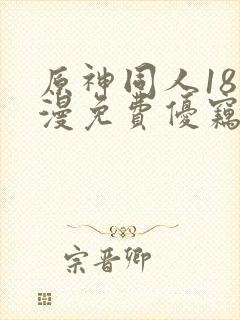 原神同人18
漫免費優竊
宗晋卿